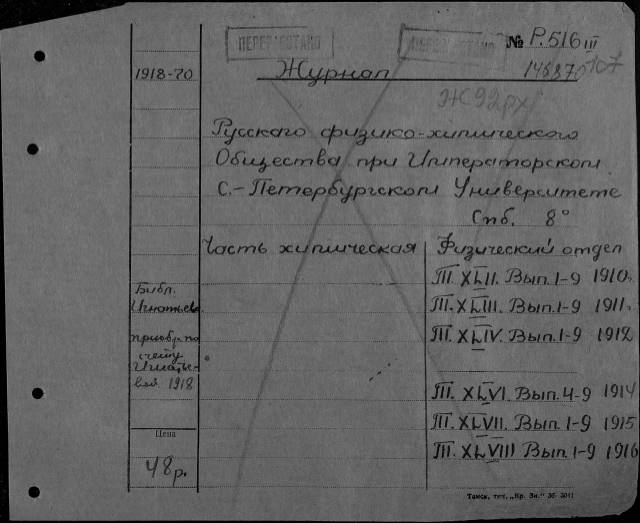 ПЕРЕРАБОТАНО
№ Р.516 III
1918-70
Журнал
148870
107
Ж92рх
Русского физико-химического
Общества при Императорском
С.-Петербургском Университете
Спб. 8°
Часть химическая
Физический отдел
Т. XLII. Вып. 1-9 1910.
Т. XLIII. Вып. 1-9 1911.
Т. XLIV. Вып. 1-9 1912
Т. XLVI. Вып. 4-9 1914
Т. XLVII. Вып. 1-9 1915
Т. XLVIII Вып. 1-9 1916
Библ.
Игнатьев
приобр. по
счету
Игнатье-
вой 1918
Цена
48 р.
Томск, тип. „Кр. Зн."